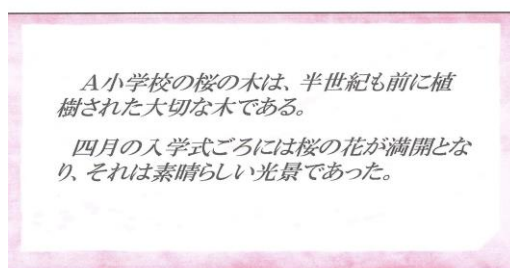 A小学校の桜の木は、半世紀も前に植
樹された大切な木である。
四月の入学式ごろには桜の花が満開とな
り、それは素晴らしい光景であった。